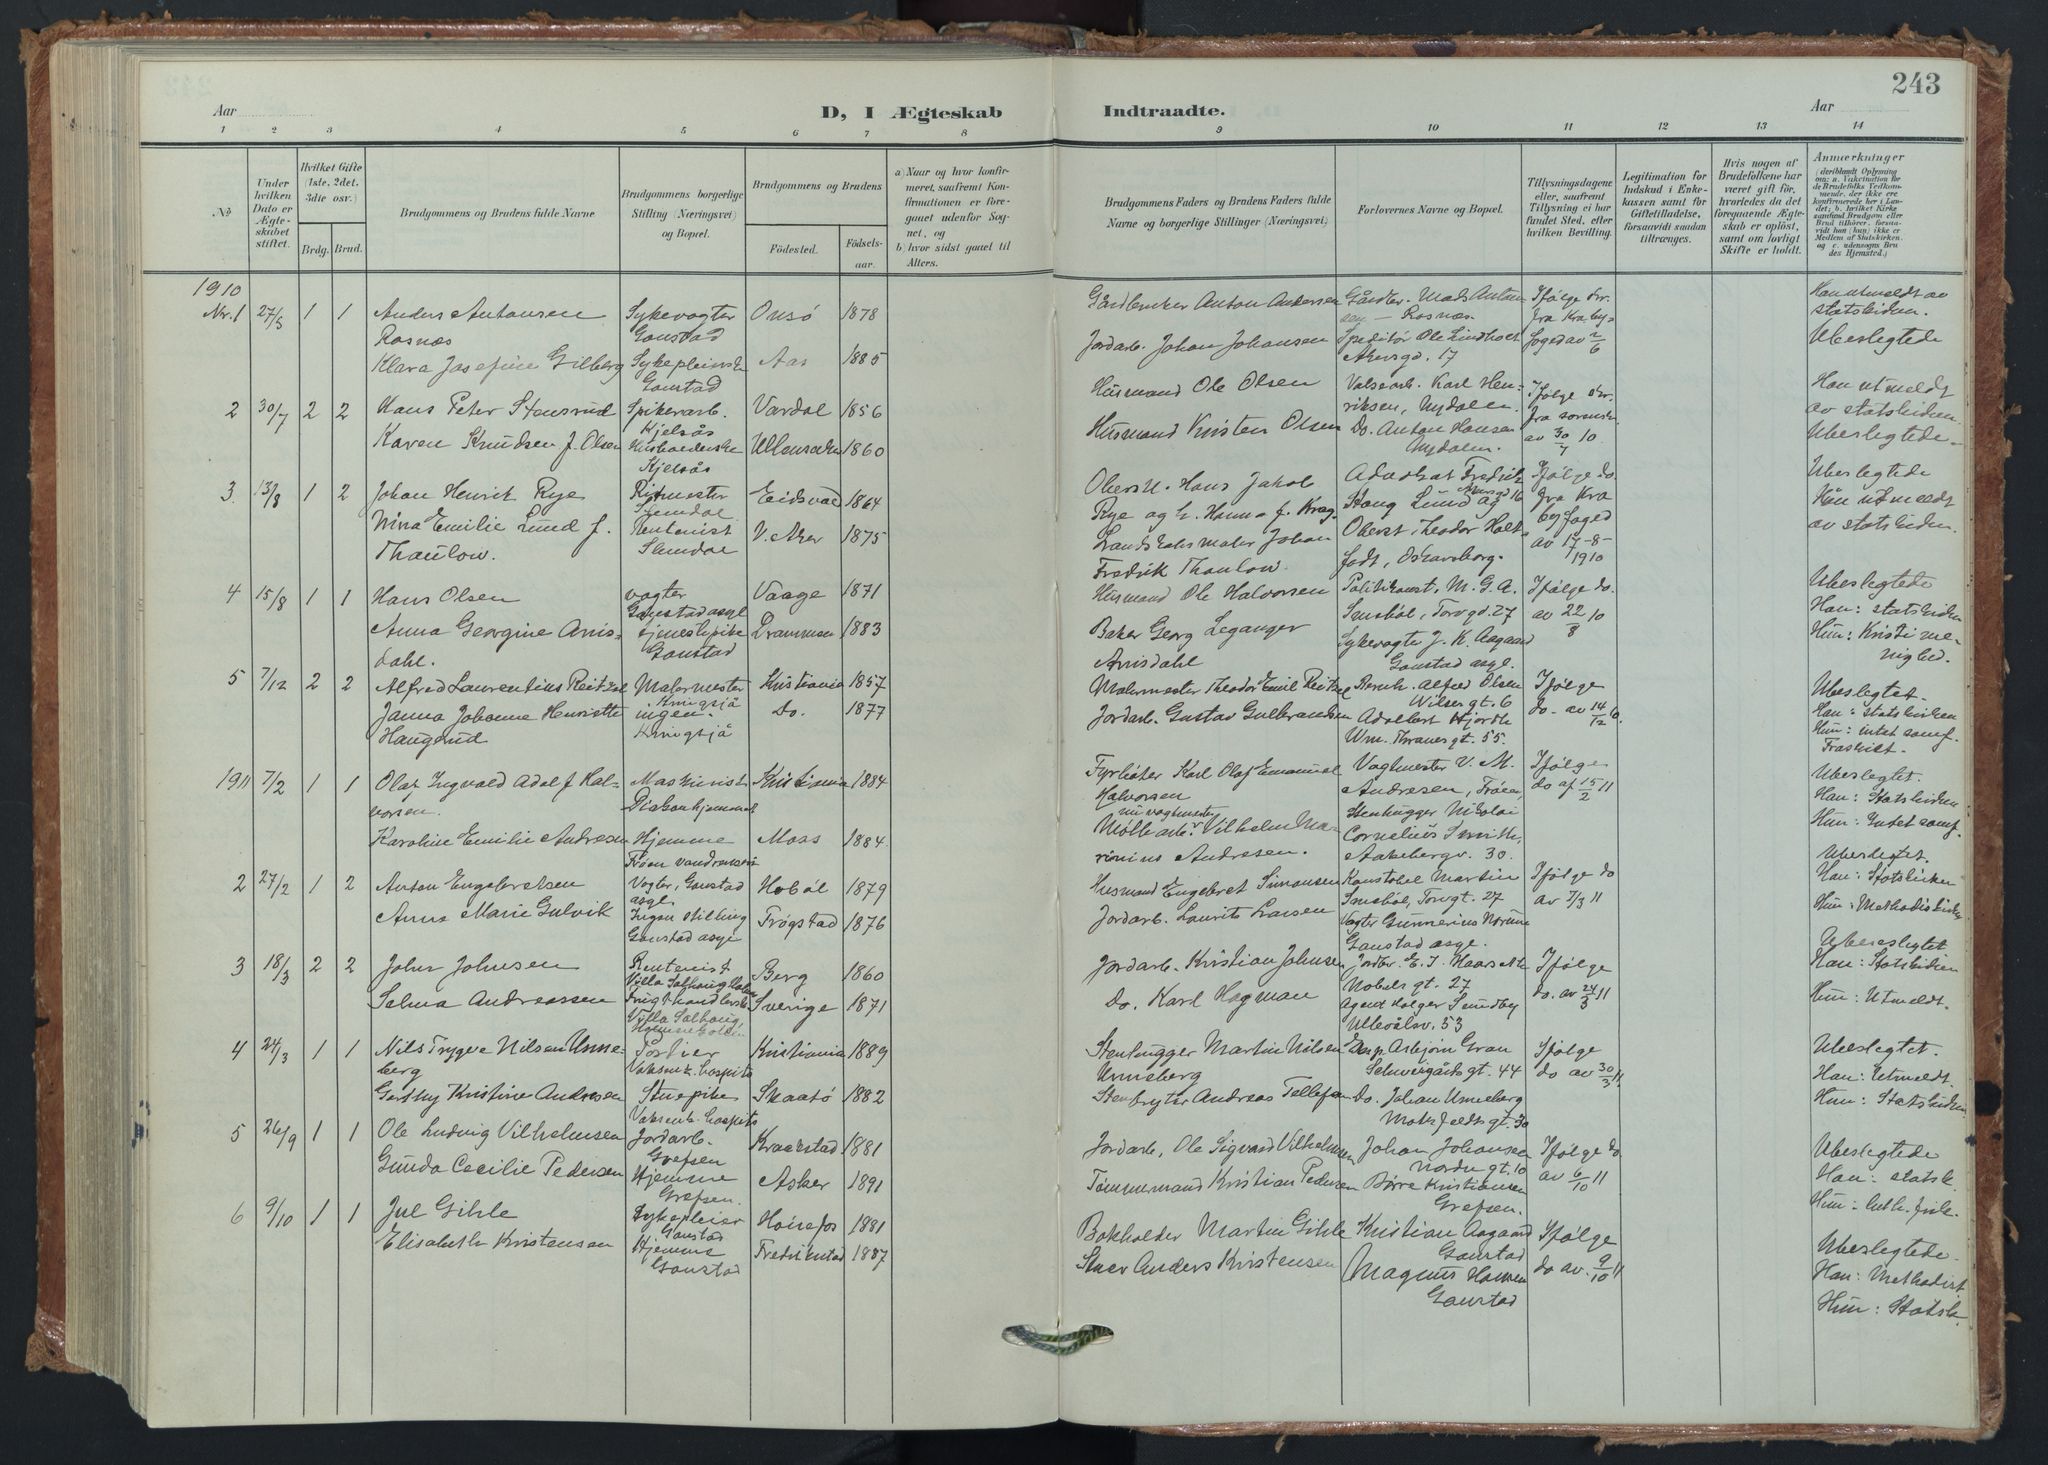 243
Aar
D, I Ægteskab
Indtraadte.
Aar
1 2 3 4 5 6 7 8 9 10 11 12 13 14
No
Under hvilken Dato er Ægteskabet stiftet.
Hvilket Gifte (1ste, 2det, 3die osv.)
Brdg. Brud.
Brudgommens og Brudens fulde Navne
Brudgommens borgerlige Stilling (Næringsvei) og Bopæl.
Brudgommens og Brudens
Fødested. Fødselsaar.
a) Naar og hvor konfirmeret, saafremt Konfirmationen er foregaaet udenfor Sognet, og
b) hvor sidst gaaet til Alters.
Brudgommens Faders og Brudens Faders fulde Navne og borgerlige Stillinger (Næringsvei)
Forlovernes Navne og Bopæl.
Tillysningsdagene eller, saafremt Tillysning ei har fundet Sted, efter hvilken Bevilling.
Legitimation for Indskud i Enkekassen samt for Giftetilladelse, forsaavidt saadan tiltrænges.
Hvis nogen af Brudefolkene har været gift før, hvorledes da det foregaaende Ægteskab er opløst, samt om lovligt Skifte er holdt.
Anmerkninger
1910
Nr. 1 27/5 1 1 Anders Antonsen Rosnæs Sykevogter Gaustad Onsø 1878
Gårdbruker Anton Andersen Gårdbr. Mads Antonsen — Rosnæs. Ifølge
Han utmeldt av statskirken.
Klara Josefine Gilberg Sykepleierske Gaustad Aas 1885
Jordarb. Johan Johansen Speditør Ole Lindholt Akersgd. 17
Ubeslegtede
2 30/7 2 2 Hans Peter Stensrud Spikerarb. Kjelsås Vardal 1856
Husmand Ole Olsen Valsearb. Karl Henriksen, Nydalen. Ifølge
Han utmeldt av statskirken
Karen Knudsen f. Olsen Husholderske Kjelsås Ullensaker 1860
Husmand Kristen Olsen Do. Anton Hansen Nydalen. av 30/7 10.
Ubeslegtede
3 13/8 1 2 Johan Henrik Rye Ritmester Slemdal Eidsvold 1864
Oberstl. Hans Jakob Rye og h. Hanna f. Krag Advokat Fredrik Stang Lund Akersgd 16 Ifølge do. fra Kra byfoged av 17-8-1910
Ubeslegtede
Han utmeldt av statskirken
Nina Emilie Lund f. Thaulow. Rentenist Slemdal V. Aker 1875
Landskabsmaler Johan Fredrik Thaulow. Oberst Theodor Holtfodt, Oskarsborg.
4 15/8 1 1 Hans Olsen vogter Gaustad asyl Vaage 1871
Husmand Ole Halvorsen Politikonst. M. G. A. Smebøl, Torvgd. 27 Ifølge do. av 22/8 10
Ubeslegtede
Han: statskirken
Hun: Kristi menighed.
Anna Georgine Arnisdahl. tjenestepike Gaustad Drammen 1883
Baker Georg Leganger Arnisdahl Sykevogter J. K. Aagaard Gaustad asyl.
5 7/12 2 2 Alfred Laurentius Reitzel Malermester Kringsjå Kristiania 1857
Malermester Theodor Emil Reitzel Bernh. Alfred Olsen Wilsesgt. 6 Ifølge do. av 14/12 10.
Ubeslegtet.
Han: statskirken
Hun: intet samf.
Fraskilt.
Janna Johanne Henriette Haugerud ingen. Kringsjå Do. 1877
Jordarb. Gustav Gulbrandsen Adalbert Hjorth Wm. Thranesgt. 55.
1911 7/2 1 1 Olaf Ingvald Adolf Halvorsen. Maskinist Diakonhjemmet Kristiania 1884
Fyrbøter Karl Olaf Emanuel Halvorsen Vagtmester V. M. Andresen, Frøen Ifølge do af 15/2 11
Ubeslegtet.
Han: Statskirken
Hun: Intet samf.
Karoline Emilie Andresen Hjemme Frøen Moss 1884.
Møllearbr. nu vagtmester Vilhelm Marinius Andresen. Stenhugger Nikolai Cornelius Smith, Aakebergv. 30.
2 27/2 1 2 Anton Engebretsen Vogter, Gaustad asyl Hobøl 1879
Husmand Engebret Simonsen Konstabel Martin Smebøl, Torvgt. 27 Ifølge do av 7/3 11
Ubeslegtet.
Han: Statskirken
Hun: Methodistkirken
Anna Marie Gulvik Ingen stilling Gaustad asyl Trøgstad 1876
Jordarb. Laurits Larsen Vogter Gunnerius Gaustad asyl.
3 18/3 2 2 Johs Johnsen Rentenist Villa Solhaug Berg 1860
Jordarb. Kristian Johnsen Nobelsgt. 27 Ifølge do. av 24/3 11
Ubeslegtet
Han: Statskirken
Hun: Utmeldt.
Selma Andreassen Frugthandlerske Villa Solhaug Sverige 1871
Do. Karl Hagman Agent Holger Sundby Ullevålsv. 53
4 24/3 1 1 Nils Trygve Nilsen Unneberg Portier Voksenk. hospits Kristiania 1889
Stenhugger Martin Nilsen Unneberg Exp. Asbjørn Gran Schweigårdsgt. 44 Ifølge do av 30/3 11
Ubeslegtet.
Han: Utmeldt.
Hun: Statskirken
Gerthy Kristine Andresen Stuepike Voksenk. hospits Skaatø 1882
Stenbryter Andreas Tellefsen Do. Johan Unneberg Motzfeldtsgt. 30
5 26/9 1 1 Ole Ludvig Vilhelmsen Jordarb. Grefsen Kraakstad 1881
Jordarb. Ole Sigvard Vilhelmsen Johan Johansen Nordregt. 10 Ifølge do av 6/10 11
Ubeslegtede
Han: statsk.
Hun: luth. frik.
Gunda Cecilie Pedersen Hjemme Grefsen. Asker 1891
Tømmermand Kristian Pedersen Børre Kristiansen Grefsen.
6 9/10 1 1 Jul Gihle Sykepleier Gaustad Hønefos 1881
Bokholder Martin Gihle Kristian Aagaard Gaustad Ifølge do av. 9/10 11
Ubeslegtede
Han: Methodist
Hun: Statsk.
Elisabeth Kristensen Hjemme Gaustad Fredrikstad 1887
Anders Kristensen Magnus Hansen Gaustad